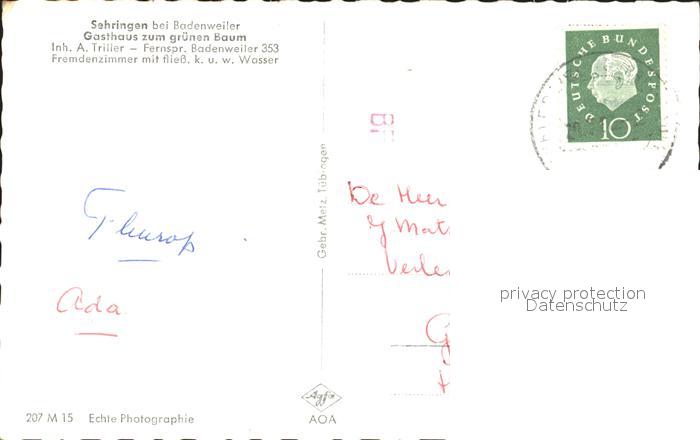 Sehringen bei Badenweiler
Gasthaus zum grünen Baum
Inh. A. Triller – Fernspr. Badenweiler 353
Fremdenzimmer mit fließ. k. u. w. Wasser
DEUTSCHE BUNDESPOST
10
Gebr. Metz, Tübingen
De Heer
J Mat
Verle
privacy protection
Datenschutz
Ada
Agfa
AOA
207 M 15 Echte Photographie